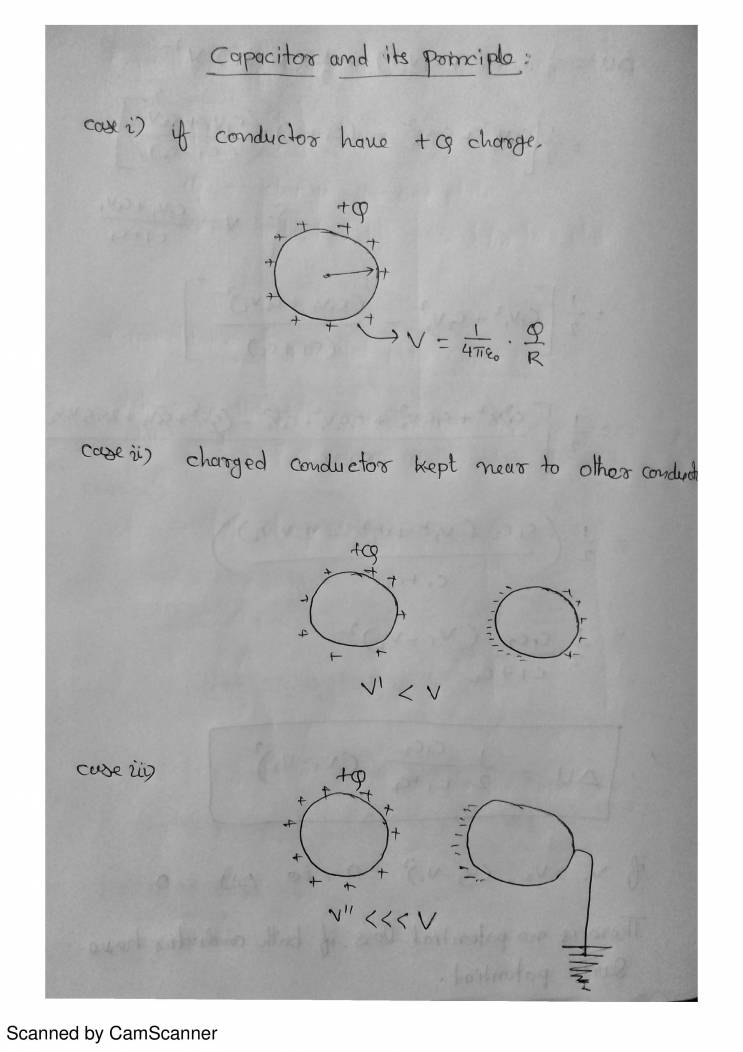 Capacitor and its principle :
case i) if conductor have +Q charge.
+Q
V = 1/4πε₀ · Q/R
case ii) charged conductor kept near to other conduct
+Q
V' < V
case iii)
+Q
V'' <<< V
Scanned by CamScanner